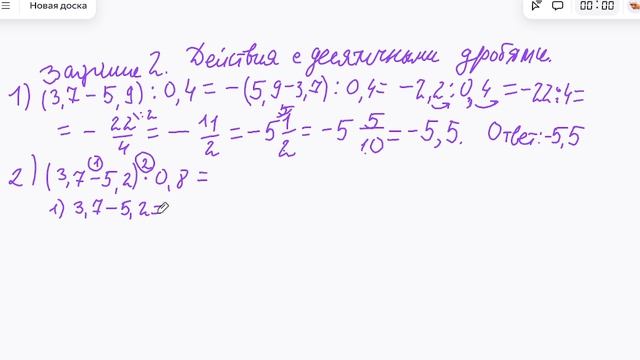 Новая доска
00:00
Задание 2. Действия с десятичными дробями.
1) (3,7 - 5,9) : 0,4 = -(5,9-3,7) : 0,4 = -2,2 : 0,4 = -22:4=
= - 22/4 :2 = - 11/2 = -5 1/2 5 = -5 5/10 = -5,5. Ответ: -5,5
2) (3,7 - 5,2) : 0,8 = 1 2
1) 3,7 - 5,2 =